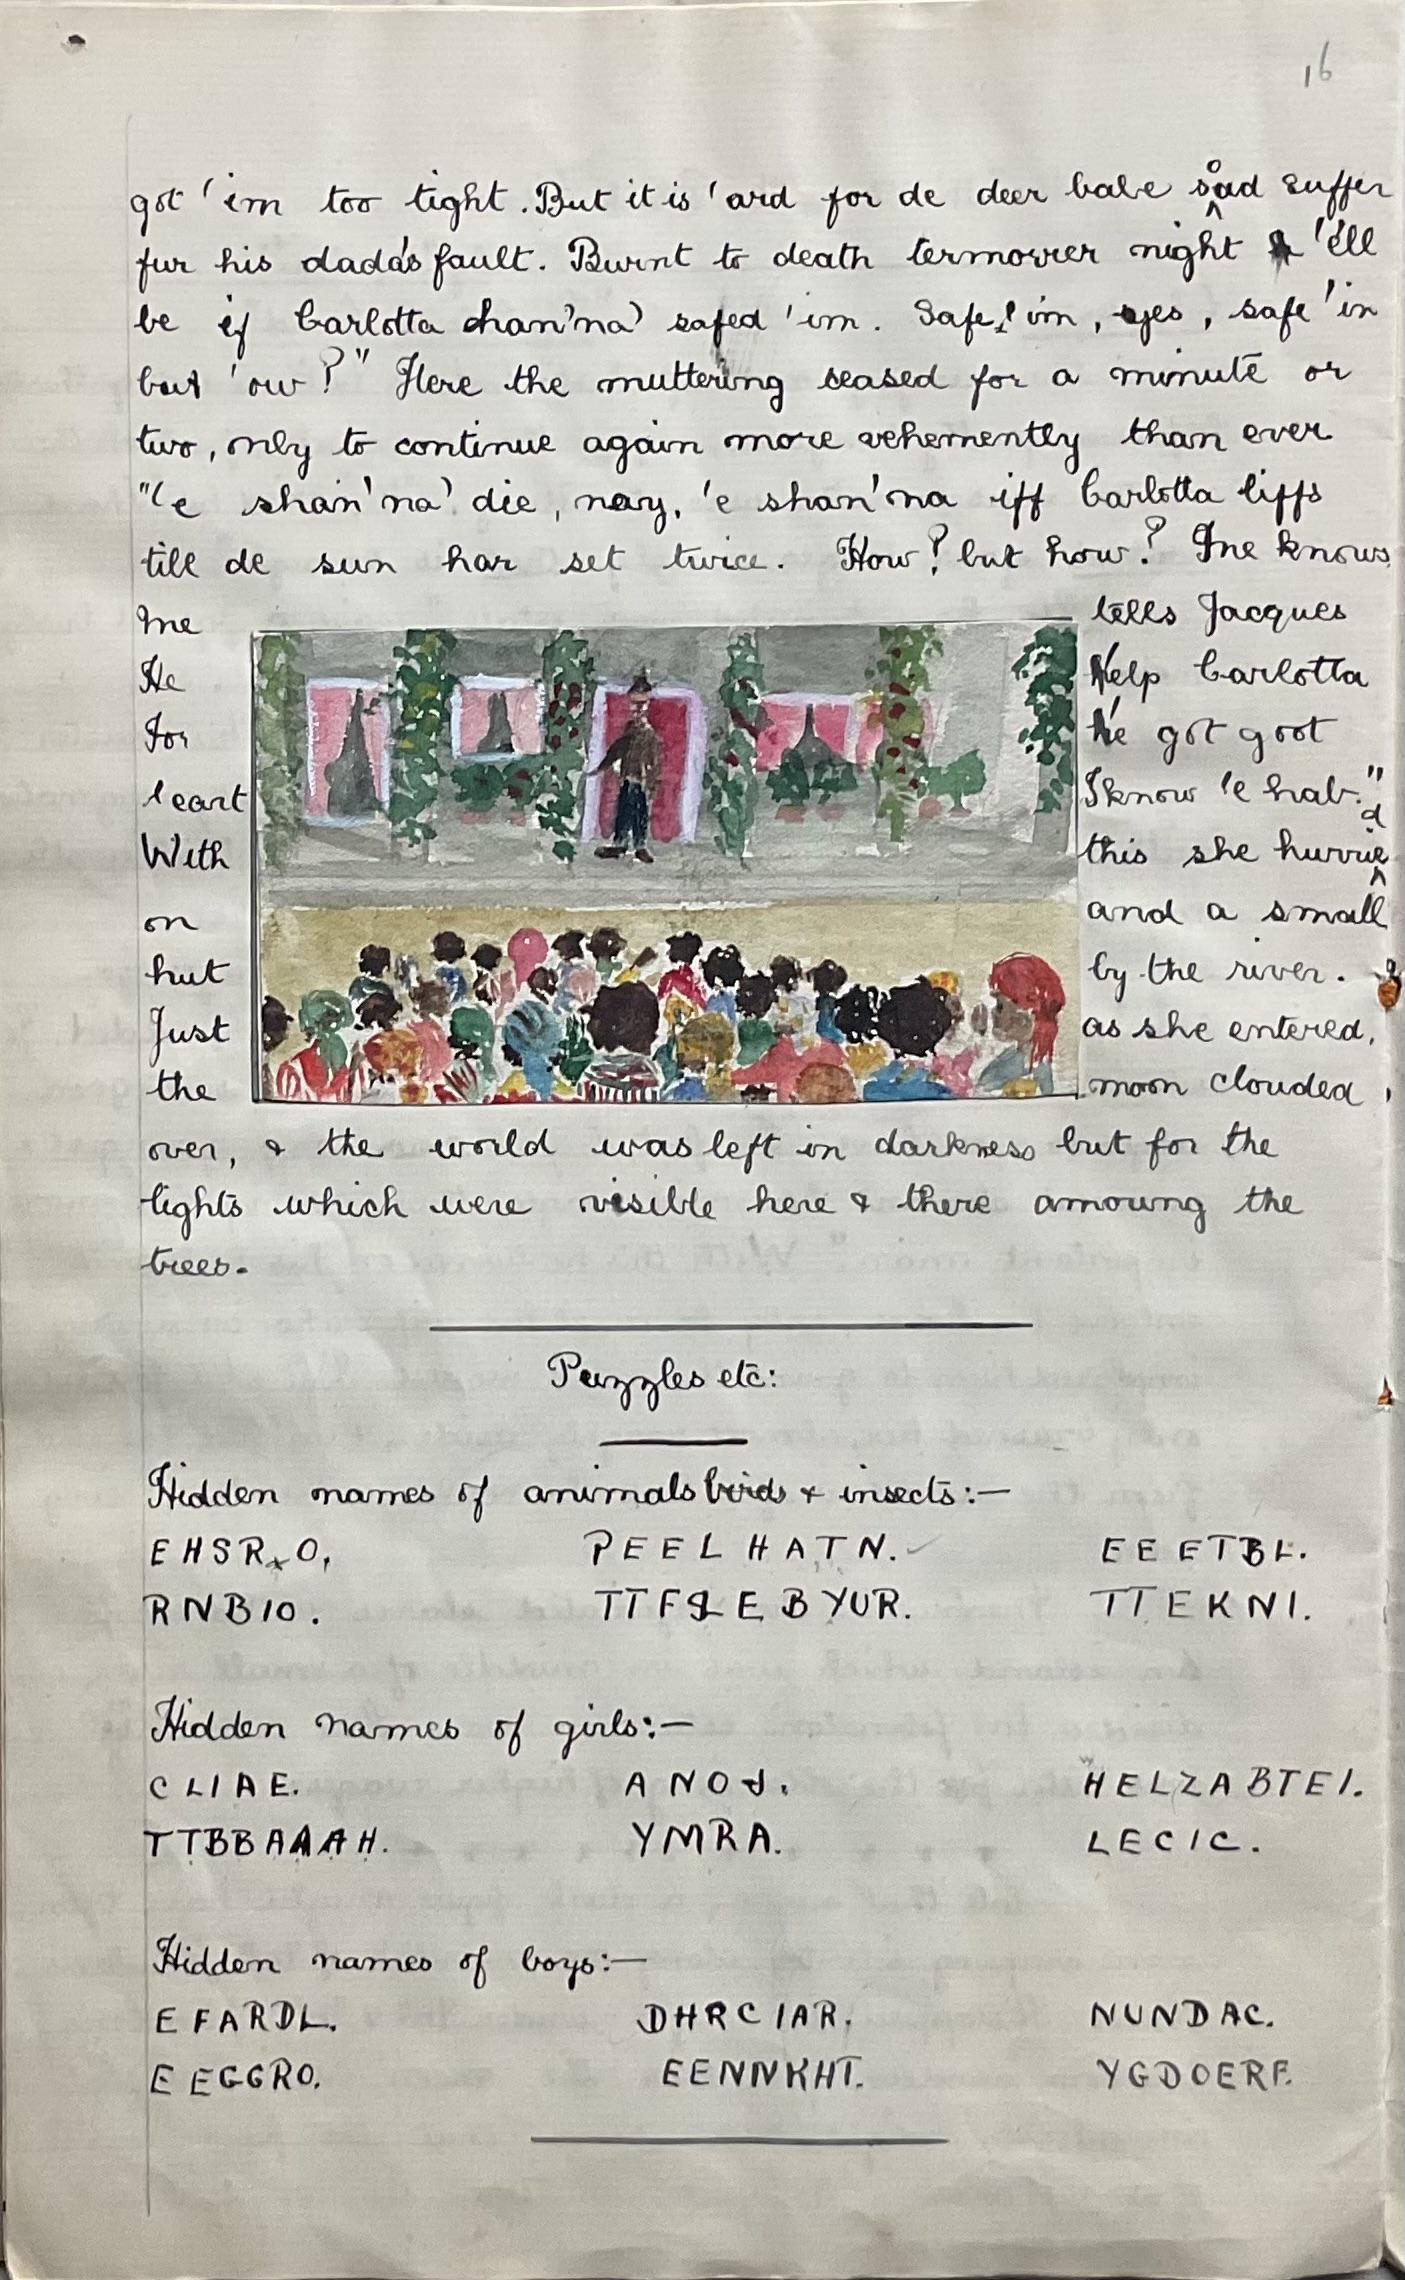 16
got 'im too tight. But it is 'ard for de deer babe soad suffer
fur his dada's fault. Burnt to death termorrer night 'e'll
be if Carlotta chan'na' safed 'im. Safe 'im, yes, safe 'im
but 'ow?" Here the muttering ceased for a minute or
two, only to continue again more vehemently than ever
"'e shan'na' die, nay, 'e shan'na iff Carlotta liffs
till de sun har set twice. How? but how? Ine knows,
Ine tells Jacques
He Help Carlotta
For 'e got goot
'eart I know 'e hab."
With this she hurried
on and a small
hut by the river.
Just as she entered,
the moon clouded,
over, & the world was left in darkness but for the
lights which were visible here & there amoung the
trees.
Puzzles etc:
Hidden names of animals birds & insects:—
EHSR O. PEELHATN. EEETBL.
RNBIO. TTFLEBYUR. TTEKNI.
Hidden names of girls:—
CLIAE. ANOJ. HELZABTEI.
TTBBAAAH. YMRA. LECIC.
Hidden names of boys:—
EFARDL. DHRCIAR. NUNDAC.
EEGGRO. EENNKHT. YGDOERF.